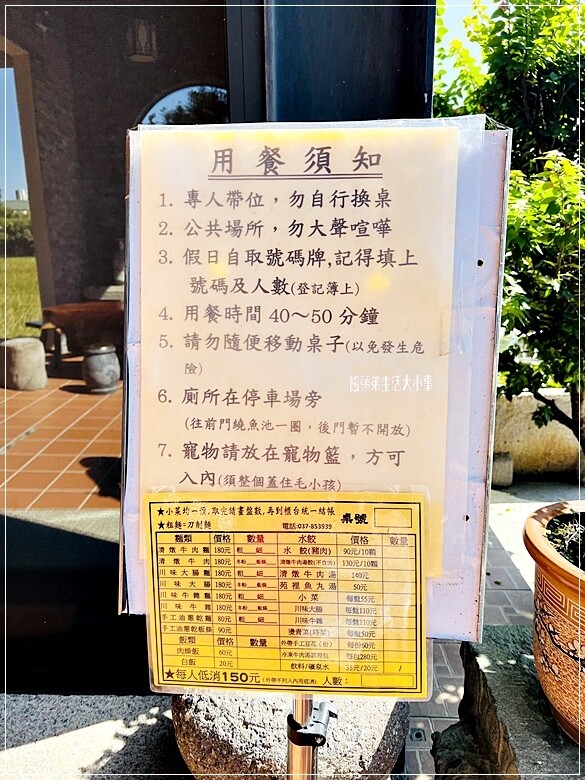 用餐須知
1. 專人帶位，勿自行換桌
2. 公共場所，勿大聲喧嘩
3. 假日自取號碼牌,記得填上
號碼及人數(登記簿上)
4. 用餐時間 40～50 分鐘
5. 請勿隨便移動桌子(以免發生危
險)
6. 廁所在停車場旁
(往前門繞魚池一圈，後門暫不開放)
7. 寵物請放在寵物籃，方可
入內(須整個蓋住毛小孩)
饅頭弟生活大小事
★小菜均一價,取完請畫盤數,再到櫃台統一結帳
★粗麵=刀削麵 電話:037-853939 桌號
麵類 價格 數量 水餃 價格 數量
清燉牛肉麵 180元 粗 細 水 餃(豬肉) 90元/10顆
清燉牛肉 180元 冬粉 板條 清燉牛肉湯餃(不含肉) 130元/10顆
川味大腸麵 180元 粗 細 清燉牛肉湯 140元
川味大腸 180元 冬粉 板條 苑裡魚丸湯 50元
川味牛雜麵 180元 粗 細 小菜 每盤55元
川味牛雜 180元 冬粉 板條 川味大腸 每盤110元
手工油蔥乾麵 80元 粗 細 川味牛雜 每盤110元
手工油蔥乾板條 90元 燙青菜(時菜) 每盤50元
飯類 價格 數量 外帶手工豆花(份) 每份60元
肉燥飯 60元 冷凍牛肉湯調理包 每包280元
白飯 20元 飲料/礦泉水 35元/20元 /
★每人低消150元(外帶不列入內用低消) 人數：